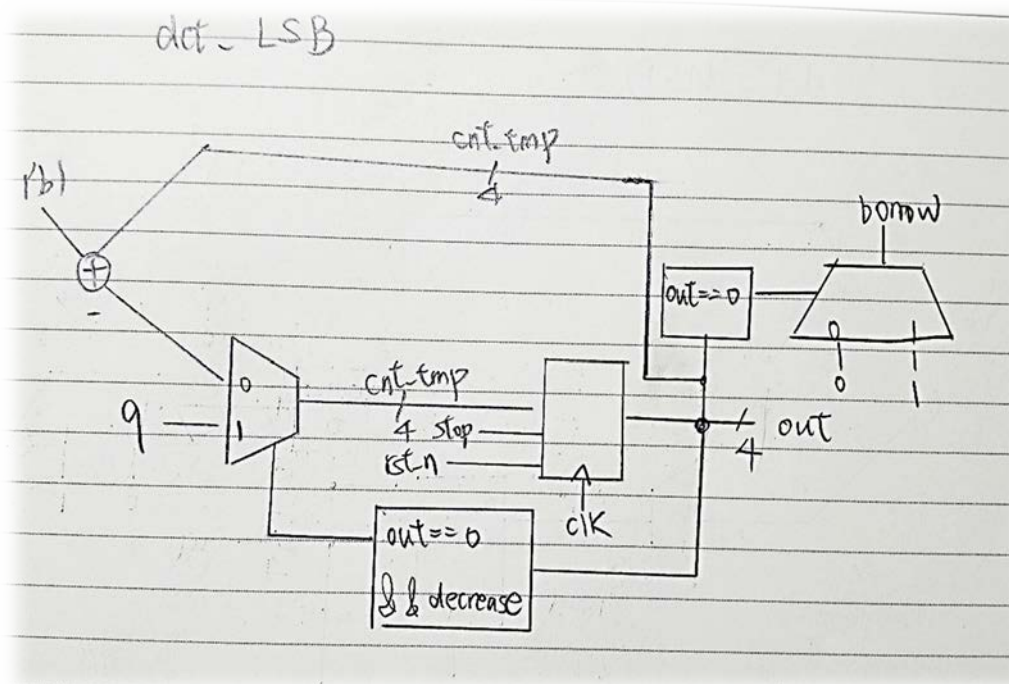 dct_LSB
cnt_tmp
4
1'b1
+
-
borrow
out==0
0
1
0
1
0
1
9
cnt_tmp
4
stop
rst_n
clk
out
4
out==0
&& decrease